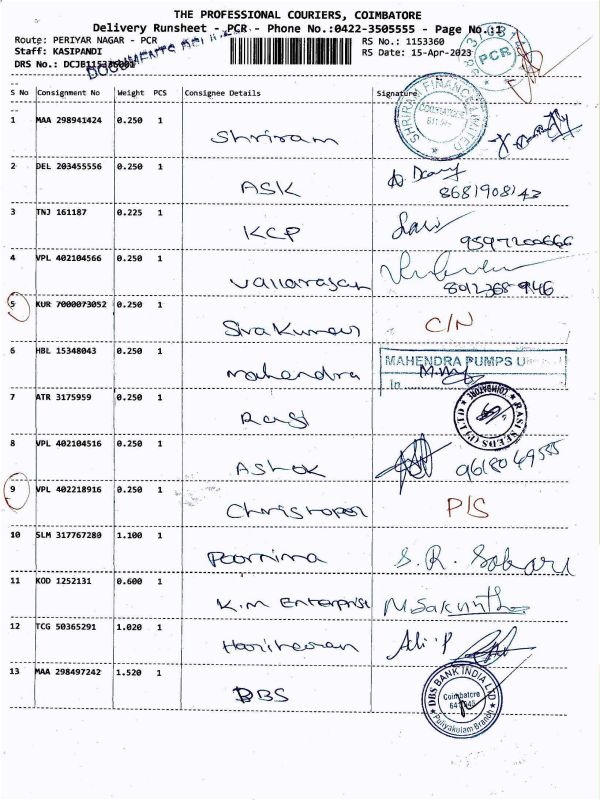 THE PROFESSIONAL COURIERS, COIMBATORE
Delivery Runsheet - PCR - Phone No.:0422-3505555 - Page No.:1
Route: PERIYAR NAGAR - PCR
RS No.: 1153360
Staff: KASIPANDI
RS Date: 15-Apr-2023
DRS No.: DCJB1153360
DOCUMENTS
PCR
S No Consignment No Weight PCS Consignee Details Signature
SHRIRAM FINANCE LIMITED
COIMBATORE
1 MAA 298941424 0.250 1 Shriram
2 DEL 203455556 0.250 1 ASK
8681908143
3 TNJ 161187 0.225 1 KCP
9597200666
4 VPL 402104566 0.250 1 Vallarasan
8012368946
5 KUR 7000073052 0.250 1 Siva Kumar C/N
6 HBL 15348043 0.250 1 Mahendra
MAHENDRA PUMPS
7 ATR 3175959 0.250 1 Rasi
RASI SEEDS (P) LTD
COIMBATORE
8 VPL 402104516 0.250 1 Ashok
9618049555
9 VPL 402218916 0.250 1 Christoper P/S
10 SLM 317767280 1.100 1 Poornima S.R.
11 KOD 1252131 0.600 1 K.M Enterprise
12 TCG 50365291 1.020 1 Hariharan
13 MAA 298497242 1.520 1 DBS
DBS BANK INDIA LTD
Coimbatore
Puliyakulam Branch